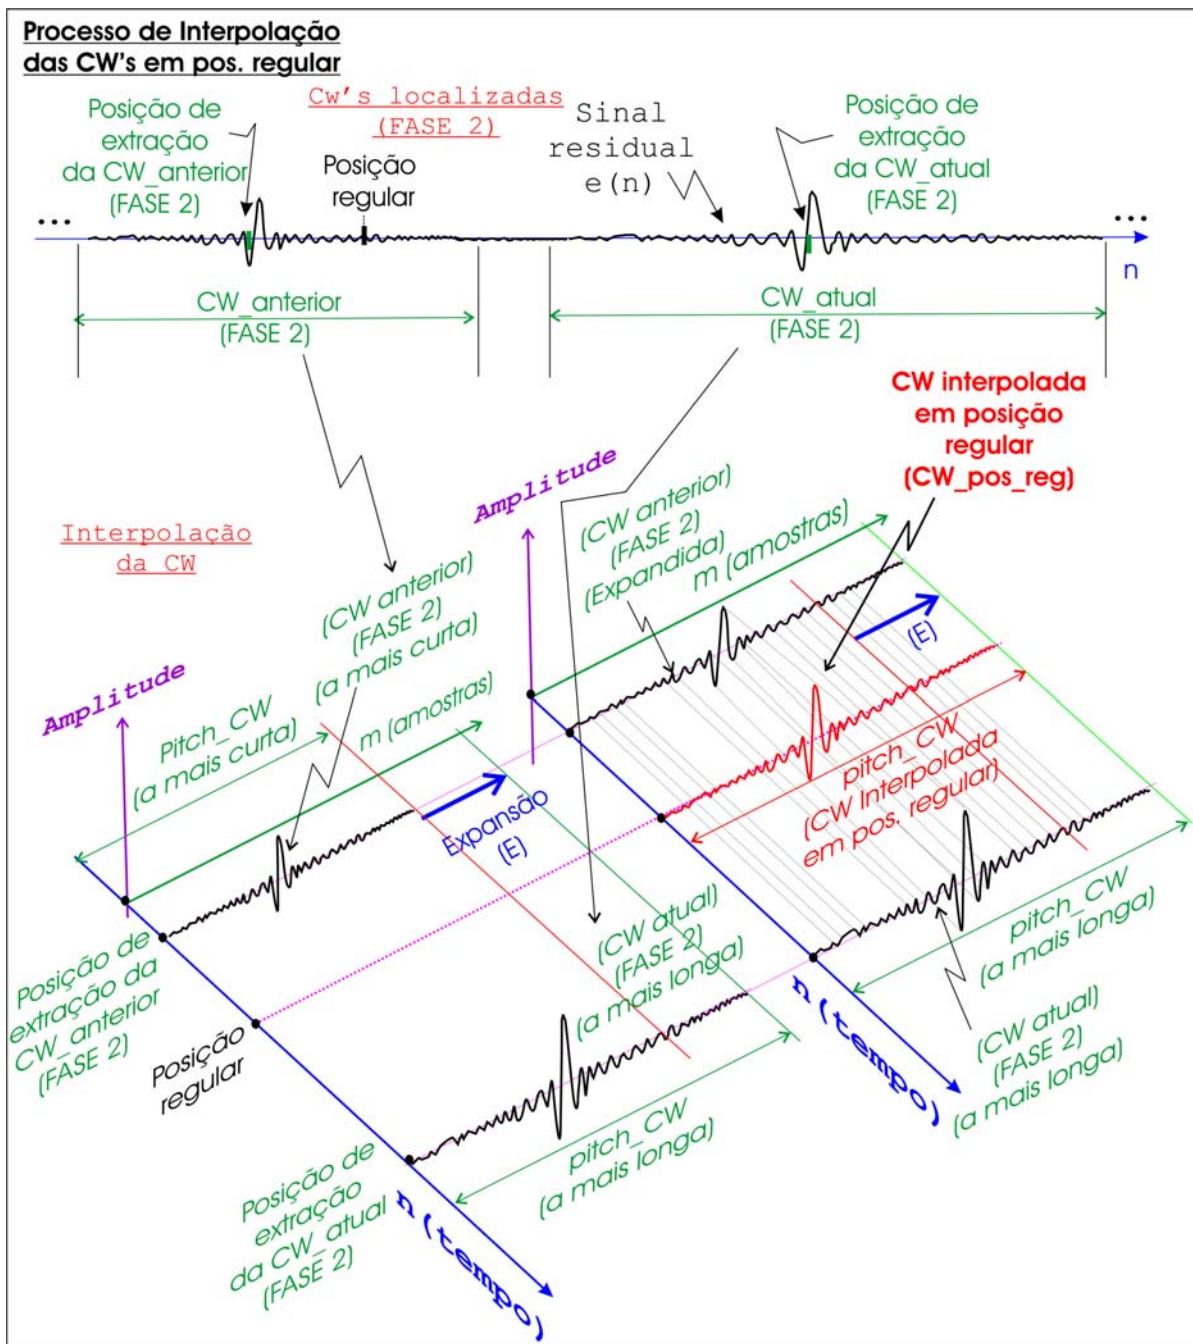 Processo de Interpolação
das CW's em pos. regular
Posição de
extração
da CW_anterior
(FASE 2)
Cw's localizadas
(FASE 2)
Posição
regular
Sinal
residual
e(n)
Posição de
extração
da CW_atual
(FASE 2)
...
...
n
CW_anterior
(FASE 2)
CW_atual
(FASE 2)
CW interpolada
em posição
regular
(CW_pos_reg)
Interpolação
da CW
Amplitude
(CW anterior)
(FASE 2)
(Expandida)
m (amostras)
(E)
Amplitude
Pitch_CW
(a mais curta)
(CW anterior)
(FASE 2)
(a mais curta)
m (amostras)
Expansão
(E)
pitch_CW
(CW Interpolada
em pos. regular)
Posição de
extração da
CW_anterior
(FASE 2)
Posição
regular
(CW atual)
(FASE 2)
(a mais longa)
pitch_CW
(a mais longa)
n (tempo)
(CW atual)
(FASE 2)
(a mais longa)
pitch_CW
(a mais longa)
Posição de
extração
da CW_atual
(FASE 2)
n (tempo)